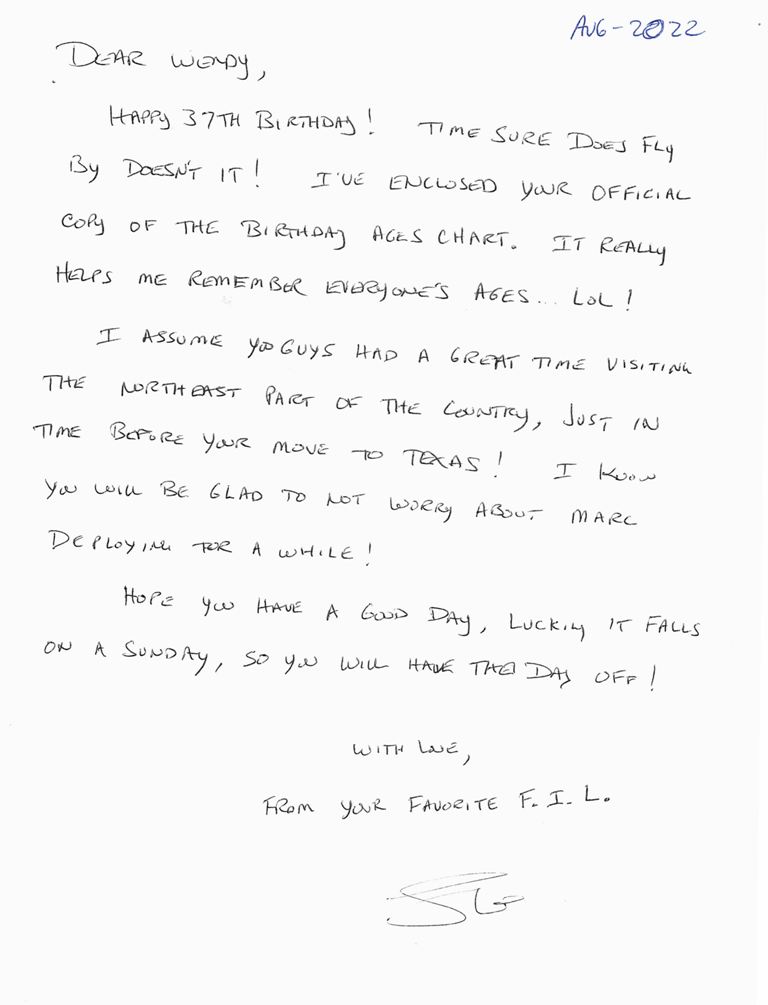 AUG-2022
DEAR WENDY,
HAPPY 37TH BIRTHDAY! TIME SURE DOES FLY
BY DOESN'T IT! I'VE ENCLOSED YOUR OFFICIAL
COPY OF THE BIRTHDAY AGES CHART. IT REALLY
HELPS ME REMEMBER EVERYONE'S AGES... LOL!
I ASSUME YOU GUYS HAD A GREAT TIME VISITING
THE NORTHEAST PART OF THE COUNTRY, JUST IN
TIME BEFORE YOUR MOVE TO TEXAS! I KNOW
YOU WILL BE GLAD TO NOT WORRY ABOUT MARC
DEPLOYING FOR A WHILE!
HOPE YOU HAVE A GOOD DAY, LUCKILY IT FALLS
ON A SUNDAY, SO YOU WILL HAVE THE DAY OFF!
WITH LOVE,
FROM YOUR FAVORITE F. I. L.